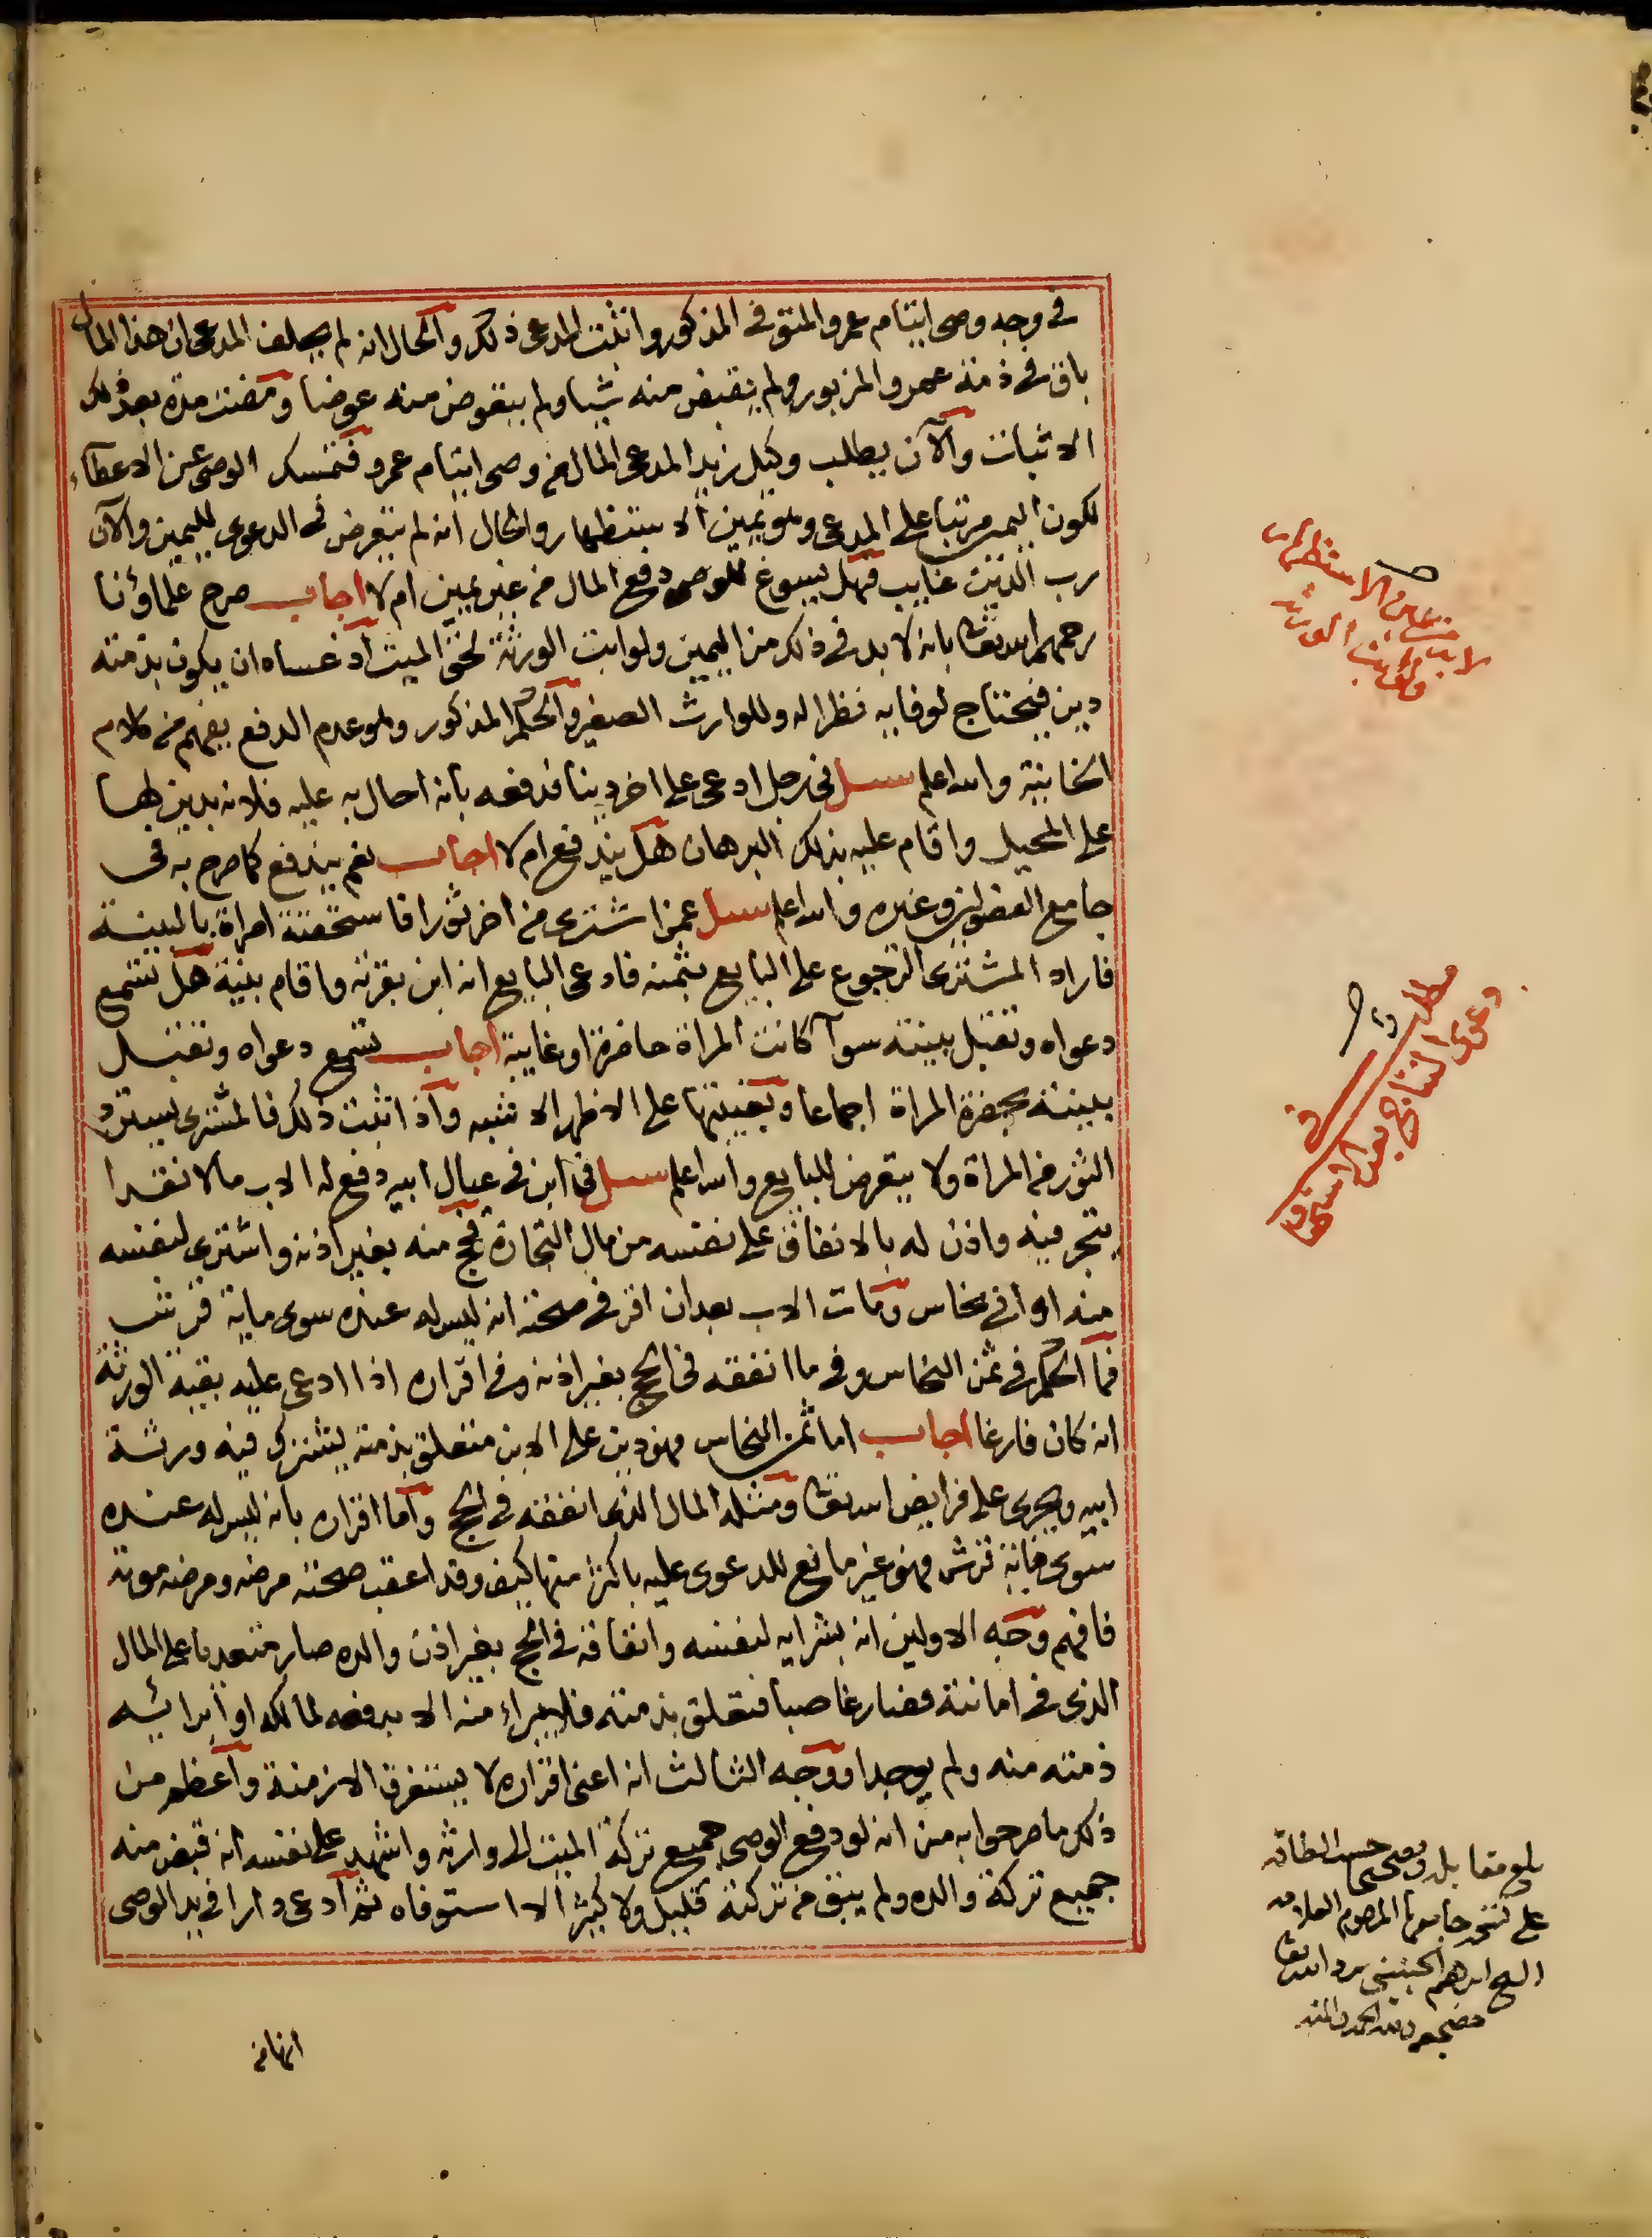 في وجه وصي ايتام عمرو المتوفى المذكور واثبت المدعى ذلك والحال انه لم يحلف المدعى ان هذا المال
باق في ذمة عمرو المزبور ولم يقبض منه شيا ولم يتعوض منه عوضا ومضت مدة بعد ذلك
الاثبات والآن يطلب وكيل زيد المدعى المال من وصى ايتام عمرو فتمسك الوصى عن الاعطآء
لكون اليمين مرتبا على المدعى وهو يمين الاستظهار والحال انه لم يتعرض في الدعوى لليمين والآن
رب الدين غايب فهل يسوغ للوصى دفع المال من غير يمين ام لا اجاب صرح علماؤنا
رحمهم الله تعالى بانه لا بد في ذلك من اليمين ولو ابت الورثة لحق الميت اذ عساه ان يكون بذمته
دين فيحتاج لوفايه نظرا له وللوارث الصغير والحكم المذكور وهو عدم الدفع يفهم من كلام
الخانية والله اعلم سيل في رجل ادعى على اخر دينا فدفعه بانه احال به عليه فلانه بدين لها
على المحيل واقام عليه بذلك البرهان هل يندفع ام لا اجاب نعم يندفع كما صرح به في
جامع الفصولين وغيره والله اعلم سيل عمن اشترى من اخر ثورا فاستحقته امراة بالبينة
فاراد المشترى الرجوع على البايع بثمنه فادعى البايع انه ابن بقرته واقام بينة هل تسمع
دعواه وتقبل بينته سوآ كانت المراة حاضرة او غايبة اجاب تسمع دعواه وتقبل
بينته بحضرة المراة اجماعا وبغيبتها على الاظهر الاشبه واذا اثبت ذلك فالمشترى يسترد
الثور من المراة ولا يتعرض للبايع والله اعلم سيل في ابن في عيال ابيه دفع له الاب مالا نقدا
يتجر فيه واذن له بالانفاق على نفسه من مال التجارة فحج منه بغير اذنه واشترى لنفسه
منه اوانى نحاس ومات الاب بعد ان اقر في صحته انه ليس له عنده سوى ماية قرش
فما الحكم في ثمن النحاس وفي ما انفقه في الحج بغير اذنه وفي اقراره اذا ادعى عليه بقية الورثة
انه كان فارغا اجاب اما ثمن النحاس فهو دين على الابن متعلق بذمته يشترك فيه ورثة
ابيه ويجرى على فرايض الله تعالى ومثله المال الذى انفقه في الحج واما اقراره بانه ليس له عنده
سوى ماية قرش فهو غير مانع للدعوى عليه باكثر منها كيف وقد اعقب صحته مرضه ومرضه موته
فافهم وجه الاولين انه بشرايه لنفسه وانفاقه في الحج بغير اذن والده صار متعديا على المال
الذى في امانته فصار غاصبا فتعلق بذمته فلا يبراء منه الا بدفعه لمالكه او ابرائه
ذمته منه ولم يوجدا ووجه الثالث انه اعنى اقراره لا يستغرق الازمنة واعظم من
ذلك ما صرحوا به من انه لو دفع الوصى جميع تركة الميت الى وارثه واشهد على نفسه انه قبض منه
جميع تركة والده ولم يبق من تركته قليل ولا كثير الا استوفاه ثم ادعى دارا في يد الوصى
انها من
لا بد من يمين الاستظهار
ولو ابت الورثة
مطلب في
دعوى النتاج بعد الاستحقاق
بلغ مقابلة وتصحيحا حسب الطاقة
على نسخة جامعها المرحوم العلامة
الشيخ ابرهيم الجينيني برد الله تعالى
مضجعه ولله الحمد والمنه